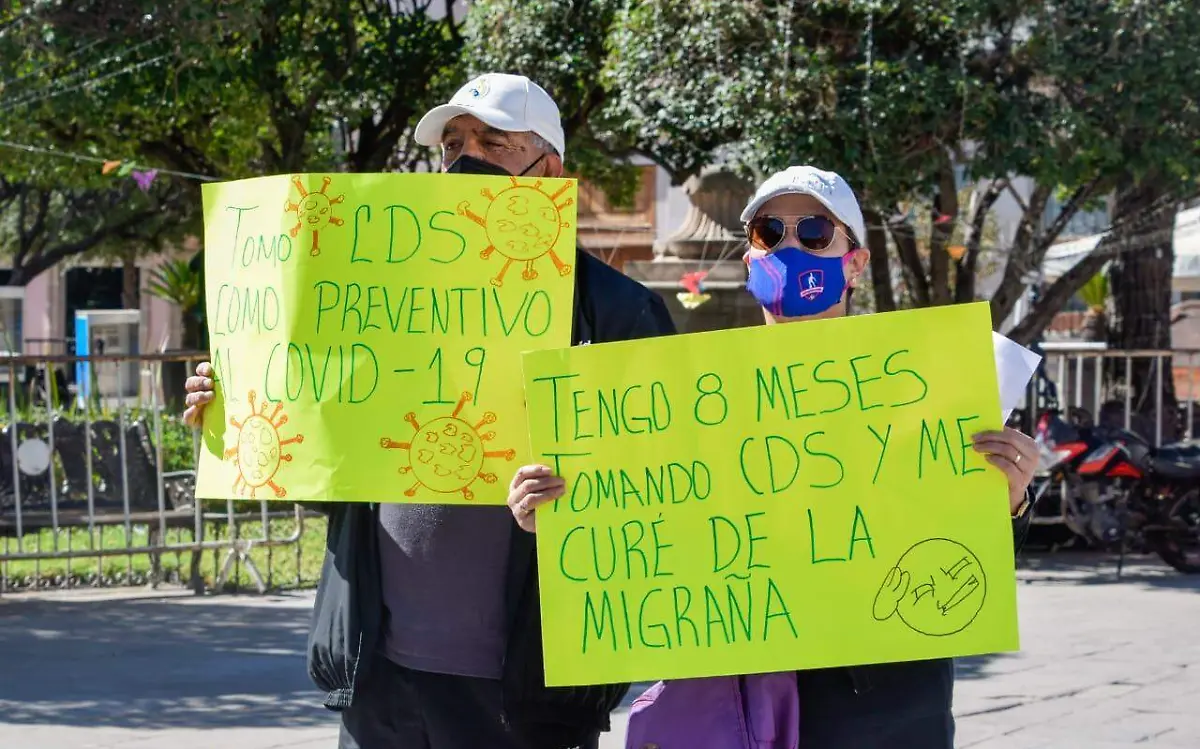 TOMO CDS
COMO PREVENTIVO
AL COVID-19
TENGO 8 MESES
TOMANDO CDS Y ME
CURÉ DE LA
MIGRAÑA